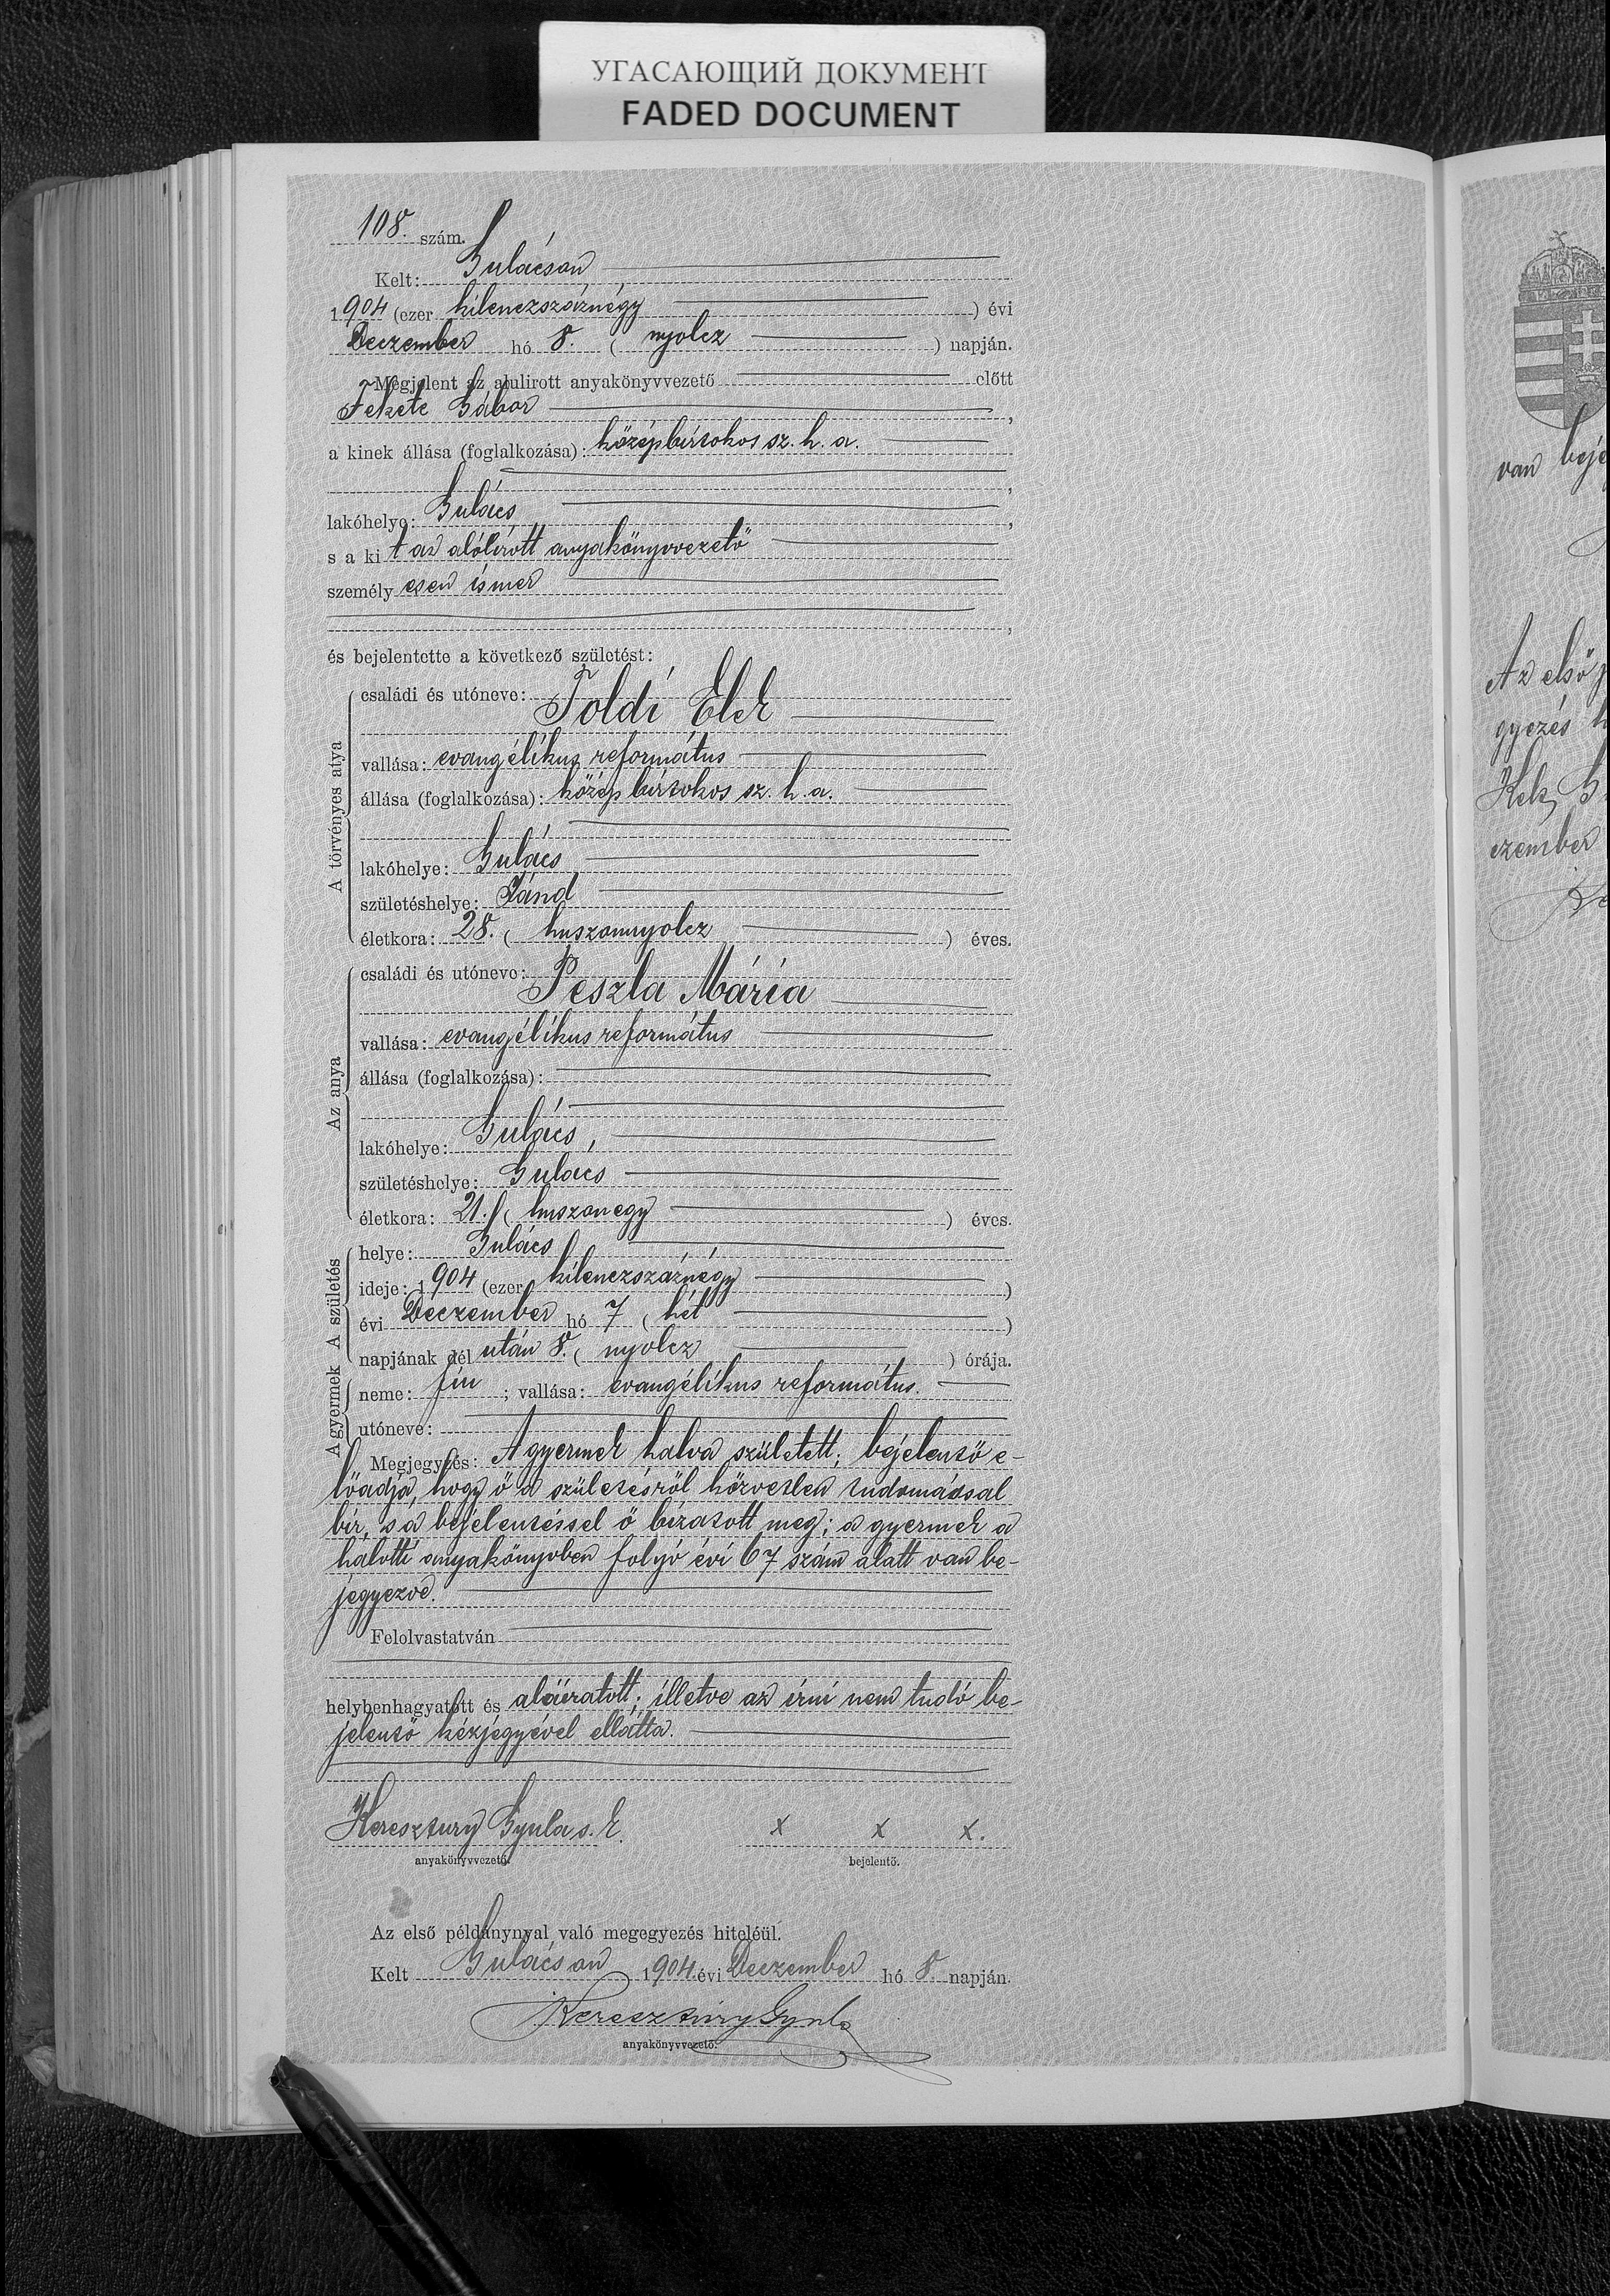 УГАСАЮЩИЙ ДОКУМЕНТ
FADED DOCUMENT
108. szám.
Kelt: Gulácson
1904 (ezer kilenczszáznégy) évi
Deczember hó 8. (nyolcz) napján.
Megjelent az alulirott anyakönyvvezető előtt
Fekete Gábor,
a kinek állása (foglalkozása): középbirtokos sz. h. a.
,
lakóhelye: Gulács,
s a kit az alólírott anyakönyvvezető
személyesen ísmer
,
és bejelentette a következő születést:
A törvényes atya
családi és utóneve:
Toldi Elek
vallása: evangélíkus református
állása (foglalkozása): közép bírtokos sz. h. a.
lakóhelye: Gulács
születéshelye: Jánd
életkora: 28. (huszonnyolcz) éves.
Az anya
családi és utóneve:
Peszla Mária
vallása: evangélíkus református
állása (foglalkozása):
lakóhelye: Gulács,
születéshelye: Gulács
életkora: 21. (huszonegy) éves.
A születés
helye: Gulács
ideje: 1904 (ezer kilenczszáznégy)
évi Deczember hó 7 (hét)
napjának délután 8. (nyolcz) órája.
A gyermek
neme: fiu; vallása: evangélíkus református.
utóneve:
Megjegyzés: A gyermek halva született; bejelentő e-
lőadja, hogy ő a születésről közvetlen tudomással
bír, s a bejelentéssel ő bízatott meg; a gyermek a
halotti anyakönyvben folyó évi 67 szám alatt van be-
jegyezve.
Felolvastatván
helybenhagyatott és aláiratott; illetve az írni nem tudó be-
jelentő kézjegyével ellátta.
Keresztury Gyula s. k. x x x.
anyakönyvvezető. bejelentő.
Az első példánynyal való megegyezés hiteléül.
Kelt Gulácson 1904 évi Deczember hó 8. napján.
Keresztury Gyula
anyakönyvvezető.
van beje
Az első p
gyezés h
Kelt, G
czember